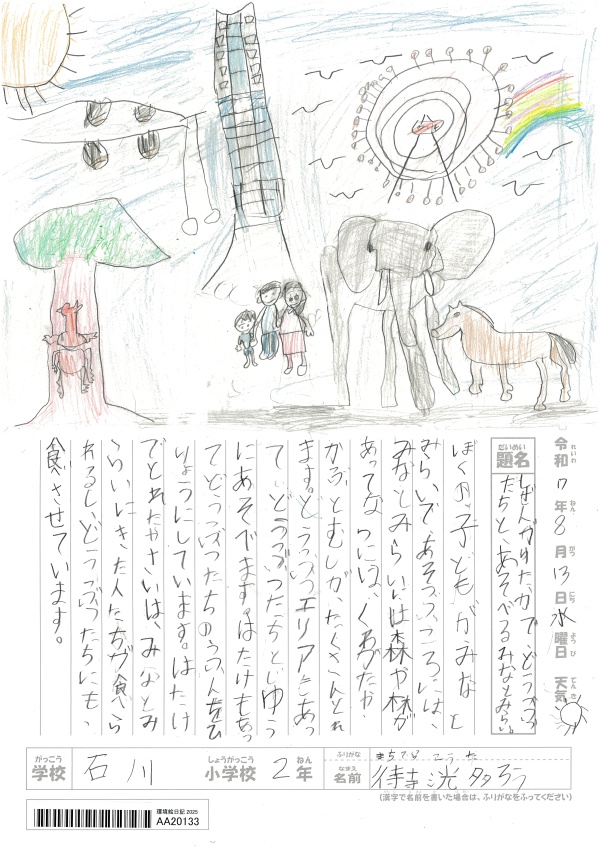 令和 れいわ 7 年 ねん 8 月 がつ 13 日 にち 水 曜日 ようび 天気 てんき
題名 だいめい
しぜんがゆたかで、どうぶつ
たちとあそべるみなとみらい
ぼくの子どもが、みなと
みらいであそぶころには、
みなとみらいには森や林が
あって、なつには、くわがたや
かぶとむしが、たくさんとれ
ます。どうぶつエリアもあっ
て、どうぶつたちといゆう
にあそべます。はたけもあっ
てどうぶつたちのうんちをひ
りょうにしています。はたけ
でとれたやさいは、みなとみ
らいにきた人たちが食べら
れるし、どうぶつたちにも、
食べさせています。
学校 がっこう 石川 小学校 しょうがっこう 2 年 ねん
ふりがな まちで こうたろう
名前 なまえ 洸多ろう
(漢字で名前を書いた場合は、ふりがなをふってください)
環境絵日記 2025
AA20133